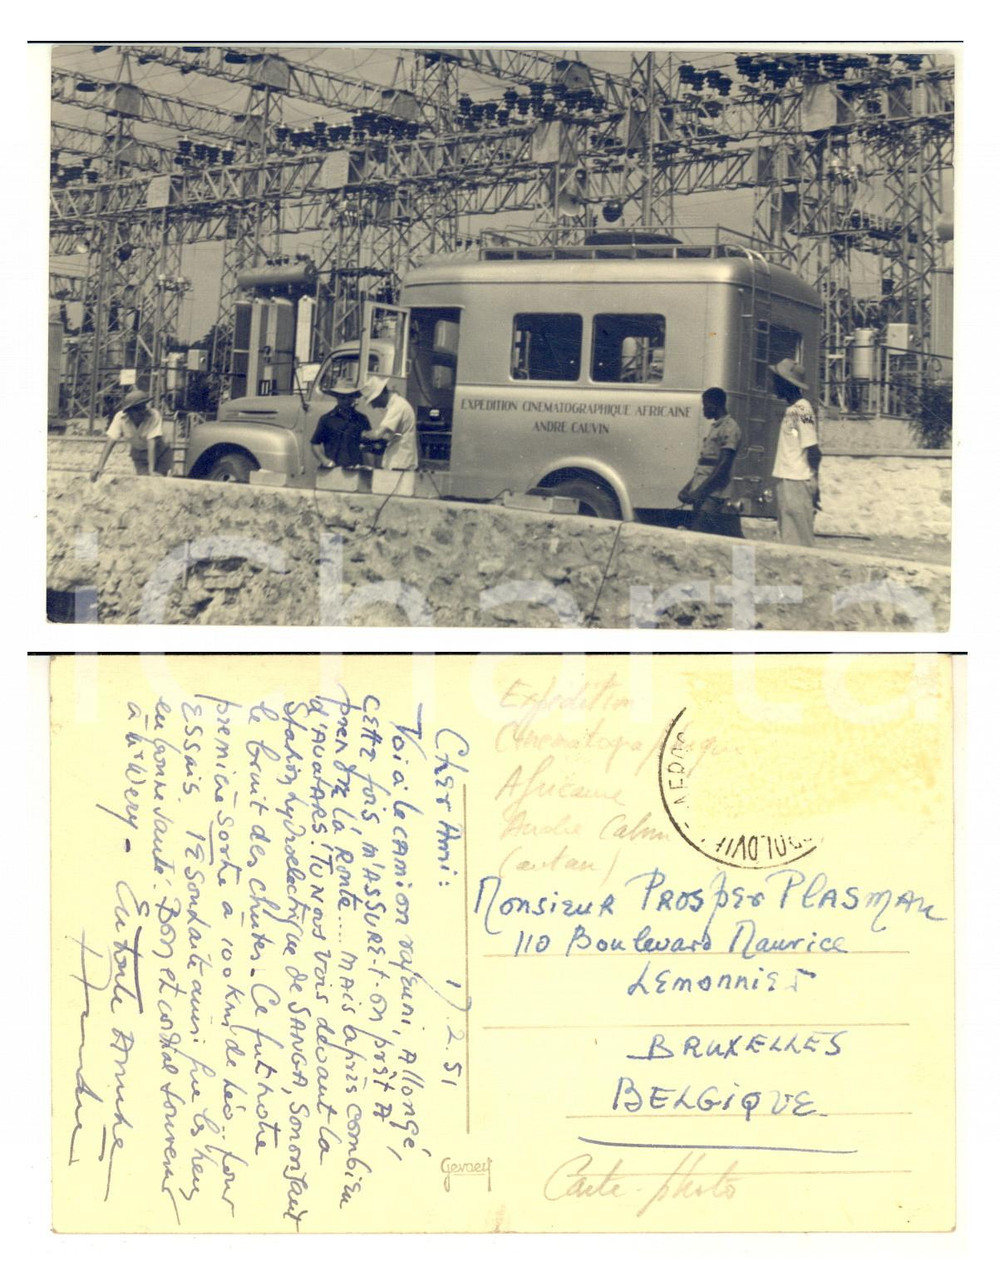 EXPEDITION CINEMATOGRAPHIQUE AFRICAINE
ANDRE CAUVIN
iCharta
Cher Ami: 17.2.51
Voilà le camion rajeuni, Allongé,
CETTE fois, M'ASSURE-t-on prêt A
prendre la Route.... mais après combien
d'AVATARS! Tu nous vois devant la
Station hydroelectrique de SANGA, Sonorisant
le bruit des chutes. Ce fut notre
première Sortie à 100 Km de Léo. pour
ESSAIS. 
en bonne santé. Bon et cordial souvenir
à 
En toute Amitié
Expédition
Cinématographique
Africaine
André Cauvin
MONSIEUR PROSPER PLASMAN
110 Boulevard Maurice
LEMONNIER
BRUXELLES
BELGIQUE
Gevaert
Carte-photo